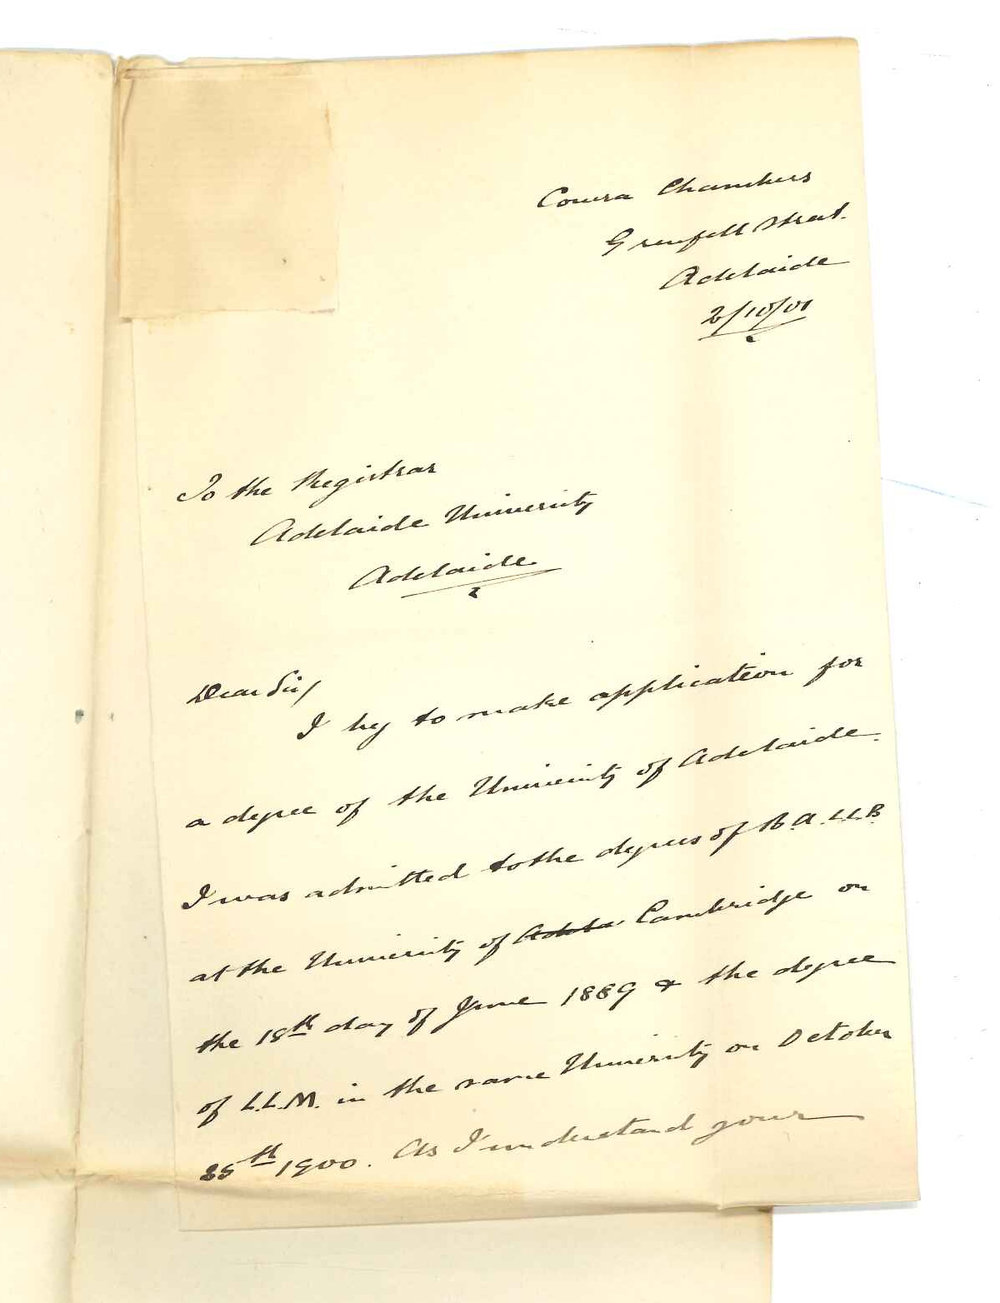 Cowra Chambers
Grenfell Street.
Adelaide
2/10/01
To the Registrar
Adelaide University
Adelaide
Dear Sir/
I beg to make application for
a degree of the University of Adelaide.
I was admitted to the degrees of B.A. LL.B.
at the University of Cambridge on
the 18th day of June 1889 & the degree
of L.L.M. in the same University on October
25th 1900. As I understand your